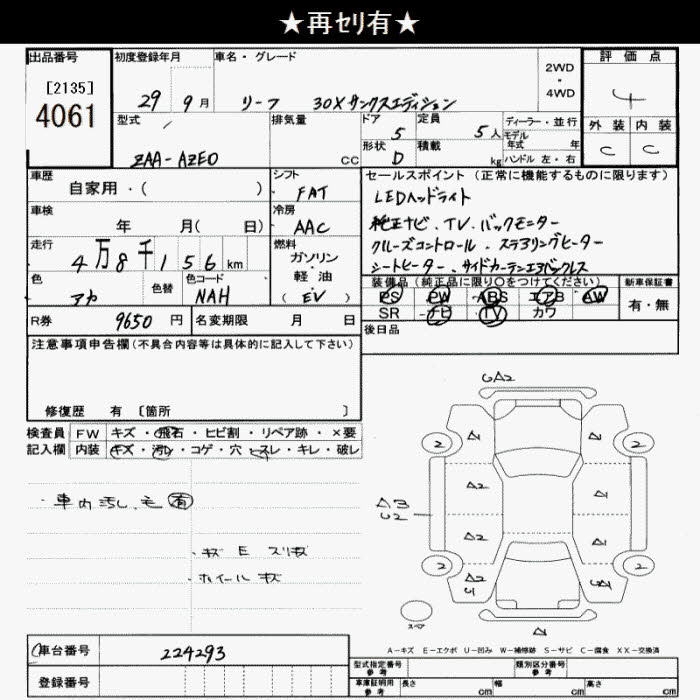 ★再セリ有★
出品番号
[2135]
4061
初度登録年月
29 9月
車名・グレード
リーフ 30X サンクスエディション
2WD
・
4WD
評価点
4
外装 内装
C C
型式
ZAA-AZE0
排気量
CC
ドア 5
形状 D
定員 5人
積載 kg
ディーラー・並行
モデル
年式 年
ハンドル 左・右
車歴
自家用・( )
車検
年 月( 日)
走行
4万8千156km
色
アカ
色替
色コード
NAH
シフト
FAT
冷房
AAC
燃料
ガソリン
・
軽・油
(EV)
セールスポイント (正常に機能するものに限ります)
LEDヘッドライト
純正ナビ、TV、バックモニター
クルーズコントロール、ステアリングヒーター
シートヒーター、サイドカーテンエアバックレス
装備品 (純正品に限り○をつけてください)
PS PW ABS エアB AW
SR ナビ TV カワ
新車保証書
有・無
R券 9650円
名変期限 月 日
後日品
注意事項申告欄(不具合内容等は具体的に記入して下さい)
修復歴 有 [箇所 ]
検査員
記入欄
FW キズ・飛石・ヒビ割・リペア跡・×要
内装 キズ・汚れ・コゲ・穴・スレ・キレ・破レ
・車内汚し、毛有
・キズ E スリキズ
・ホイールキズ
UA2
A1
A1
2
2
A2
A1
A3
U2
A2
A1
2
2
A2
U1
UA1
スペア
A1
A-キズ E-エクボ U-凹み W-補修跡 S-サビ C-腐食 XX-交換済
車台番号 224293
登録番号
型式指定番号
参考
類別区分番号
参考
車庫証明用
参考
長さ cm
幅 cm
高さ cm